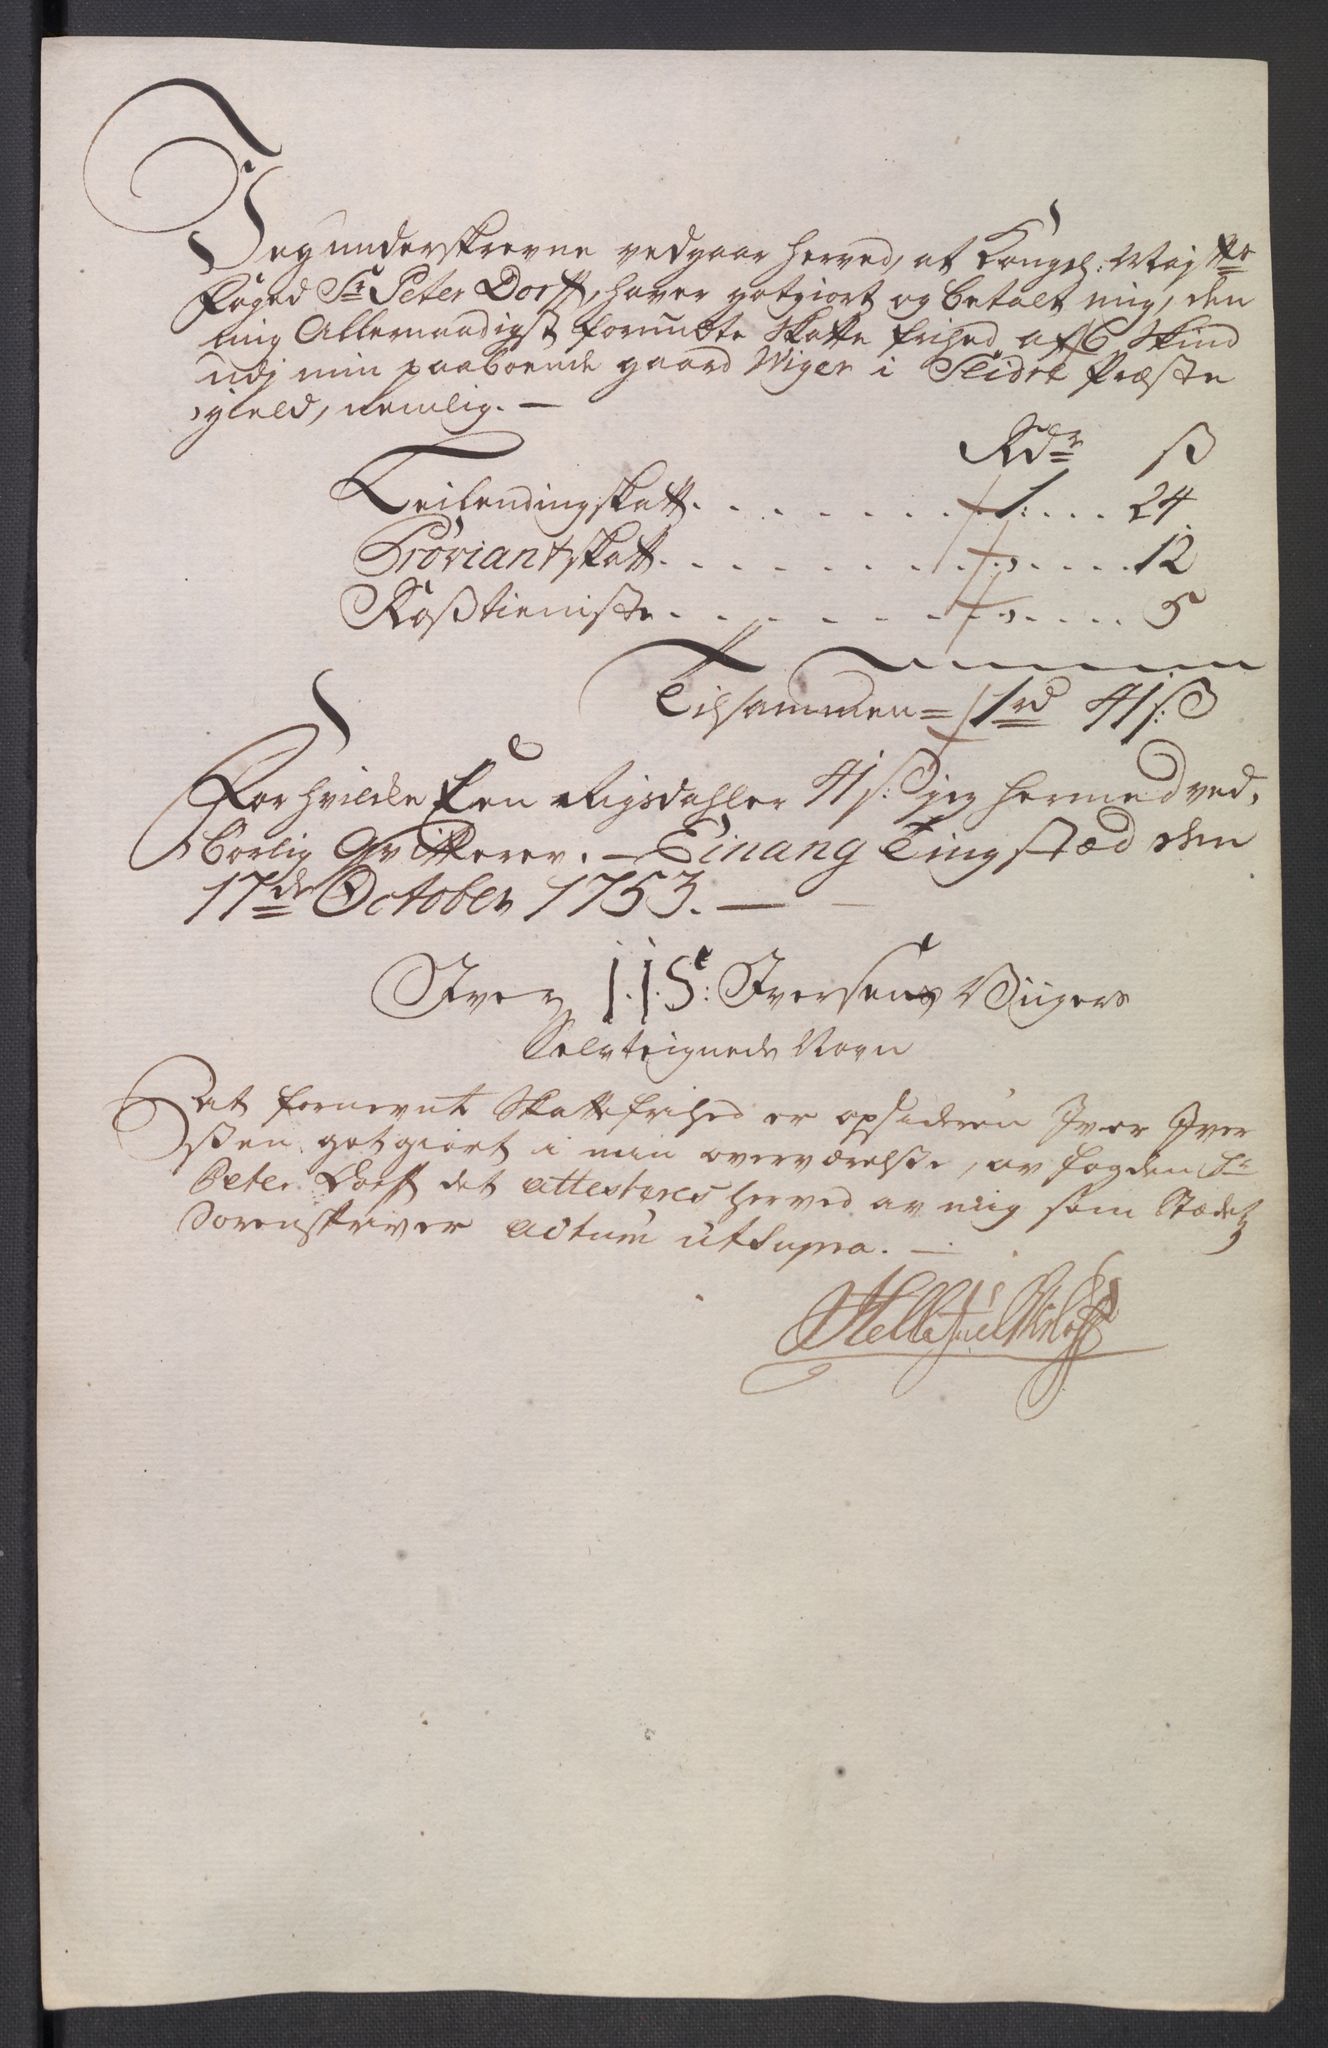 Jeg underskrevne vedgaar herved, at Kongel: Maj:tts
Foged Sr Peter Dorff, haver gotgiort og betalt mig, den
mig Allernaadigst forundte Skatte frihed af 6 Skind
udj min paaboende gaard Wiger i Slidre Præste
gield, nemlig. —
Rdr ß
Leilendingskatt . . . . . . . . 1: . . . . 24
Proviantskatt . . . . . . . . „ . . . . 12
Roßtieniste . . . . . . . . „ . . . . 5
Tilsammen = 1rd 41 ß:
For hvilcke Een Rigsdahler 41 ß: jeg hermed ved,
børlig Qvitterer. — Einang Tingstæd den
17de October 1753. —
Iver I. I. S: Iversens Wiigers
Selvteignede Navn
At fornevnte Skattefrihed er opsideren Iver Iver
ßen gotgiort i min overværelse, av fogden Sr
Peter Dorff det attesteres herved av mig som Stædetz
Sorenskriver actum ut supra. —